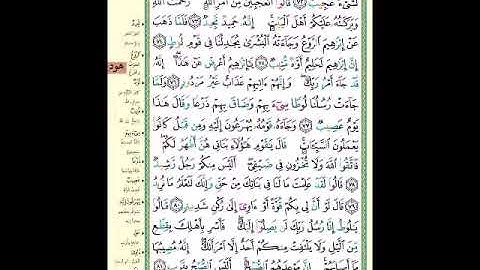 لَشَىْءٌ عَجِيبٌ ۝٧٢ قَالُوٓا۟ أَتَعْجَبِينَ مِنْ أَمْرِ ٱللَّهِ ۖ رَحْمَتُ ٱللَّهِ
وَبَرَكَـٰتُهُۥ عَلَيْكُمْ أَهْلَ ٱلْبَيْتِ ۚ إِنَّهُۥ حَمِيدٌ مَّجِيدٌ ۝٧٣ فَلَمَّا ذَهَبَ
عَنْ إِبْرَٰهِيمَ ٱلرَّوْعُ وَجَآءَتْهُ ٱلْبُشْرَىٰ يُجَـٰدِلُنَا فِى قَوْمِ لُوطٍ ۝٧٤
إِنَّ إِبْرَٰهِيمَ لَحَلِيمٌ أَوَّٰهٌ مُّنِيبٌ ۝٧٥ يَـٰٓإِبْرَٰهِيمُ أَعْرِضْ عَنْ هَـٰذَآ ۖ إِنَّهُۥ
قَدْ جَآءَ أَمْرُ رَبِّكَ ۖ وَإِنَّهُمْ ءَاتِيهِمْ عَذَابٌ غَيْرُ مَرْدُودٍ ۝٧٦ وَلَمَّا
جَآءَتْ رُسُلُنَا لُوطًا سِىٓءَ بِهِمْ وَضَاقَ بِهِمْ ذَرْعًا وَقَالَ هَـٰذَا
يَوْمٌ عَصِيبٌ ۝٧٧ وَجَآءَهُۥ قَوْمُهُۥ يُهْرَعُونَ إِلَيْهِ وَمِن قَبْلُ كَانُوا۟
يَعْمَلُونَ ٱلسَّيِّـَٔاتِ ۚ قَالَ يَـٰقَوْمِ هَـٰٓؤُلَآءِ بَنَاتِى هُنَّ أَطْهَرُ لَكُمْ ۖ
فَٱتَّقُوا۟ ٱللَّهَ وَلَا تُخْزُونِ فِى ضَيْفِىٓ ۖ أَلَيْسَ مِنكُمْ رَجُلٌ رَّشِيدٌ
۝٧٨ قَالُوا۟ لَقَدْ عَلِمْتَ مَا لَنَا فِى بَنَاتِكَ مِنْ حَقٍّ وَإِنَّكَ لَتَعْلَمُ مَا نُرِيدُ
۝٧٩ قَالَ لَوْ أَنَّ لِى بِكُمْ قُوَّةً أَوْ ءَاوِىٓ إِلَىٰ رُكْنٍ شَدِيدٍ ۝٨٠ قَالُوا۟
يَـٰلُوطُ إِنَّا رُسُلُ رَبِّكَ لَن يَصِلُوٓا۟ إِلَيْكَ ۖ فَأَسْرِ بِأَهْلِكَ بِقِطْعٍ
مِّنَ ٱلَّيْلِ وَلَا يَلْتَفِتْ مِنكُمْ أَحَدٌ إِلَّا ٱمْرَأَتَكَ ۖ إِنَّهُۥ مُصِيبُهَا
مَآ أَصَابَهُمْ ۚ إِنَّ مَوْعِدَهُمُ ٱلصُّبْحُ ۚ أَلَيْسَ ٱلصُّبْحُ بِقَرِيبٍ ۝٨١
هود